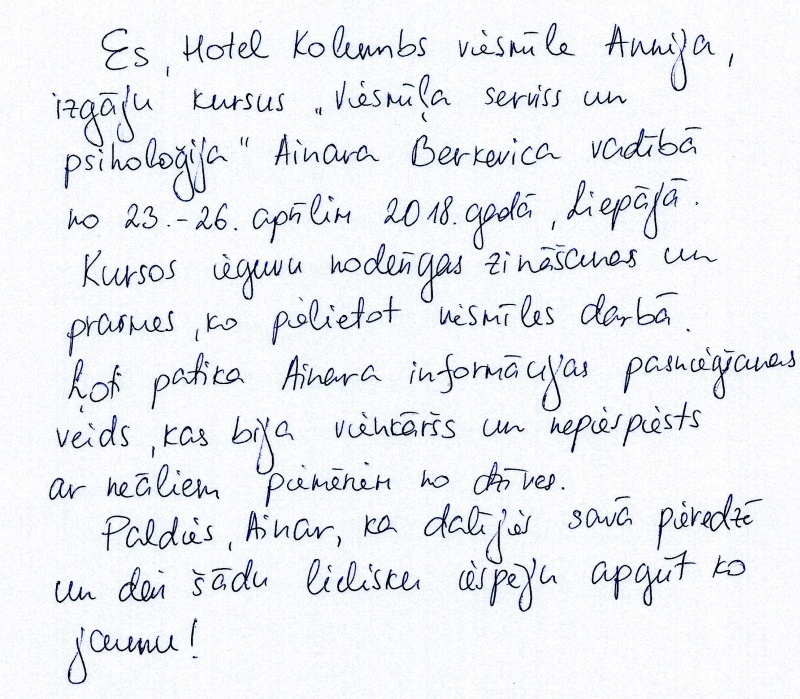 Es, Hotel Kolumbs viesmīle Annija,
izgāju kursus „Viesmīļa serviss un
psiholoģija" Ainara Berkevica vadībā
no 23.-26. aprīlim 2018. gadā, Liepājā.
Kursos ieguvu noderīgas zināšanas un
prasmes, ko pielietot viesmīles darbā.
Ļoti patika Ainara informācijas pasniegšanas
veids, kas bija vienkāršs un nepiespiests
ar reāliem piemēriem no dzīves.
Paldies, Ainar, ka dalījies savā pieredzē
un devi šādu lielisku iespēju apgūt ko
jaunu!